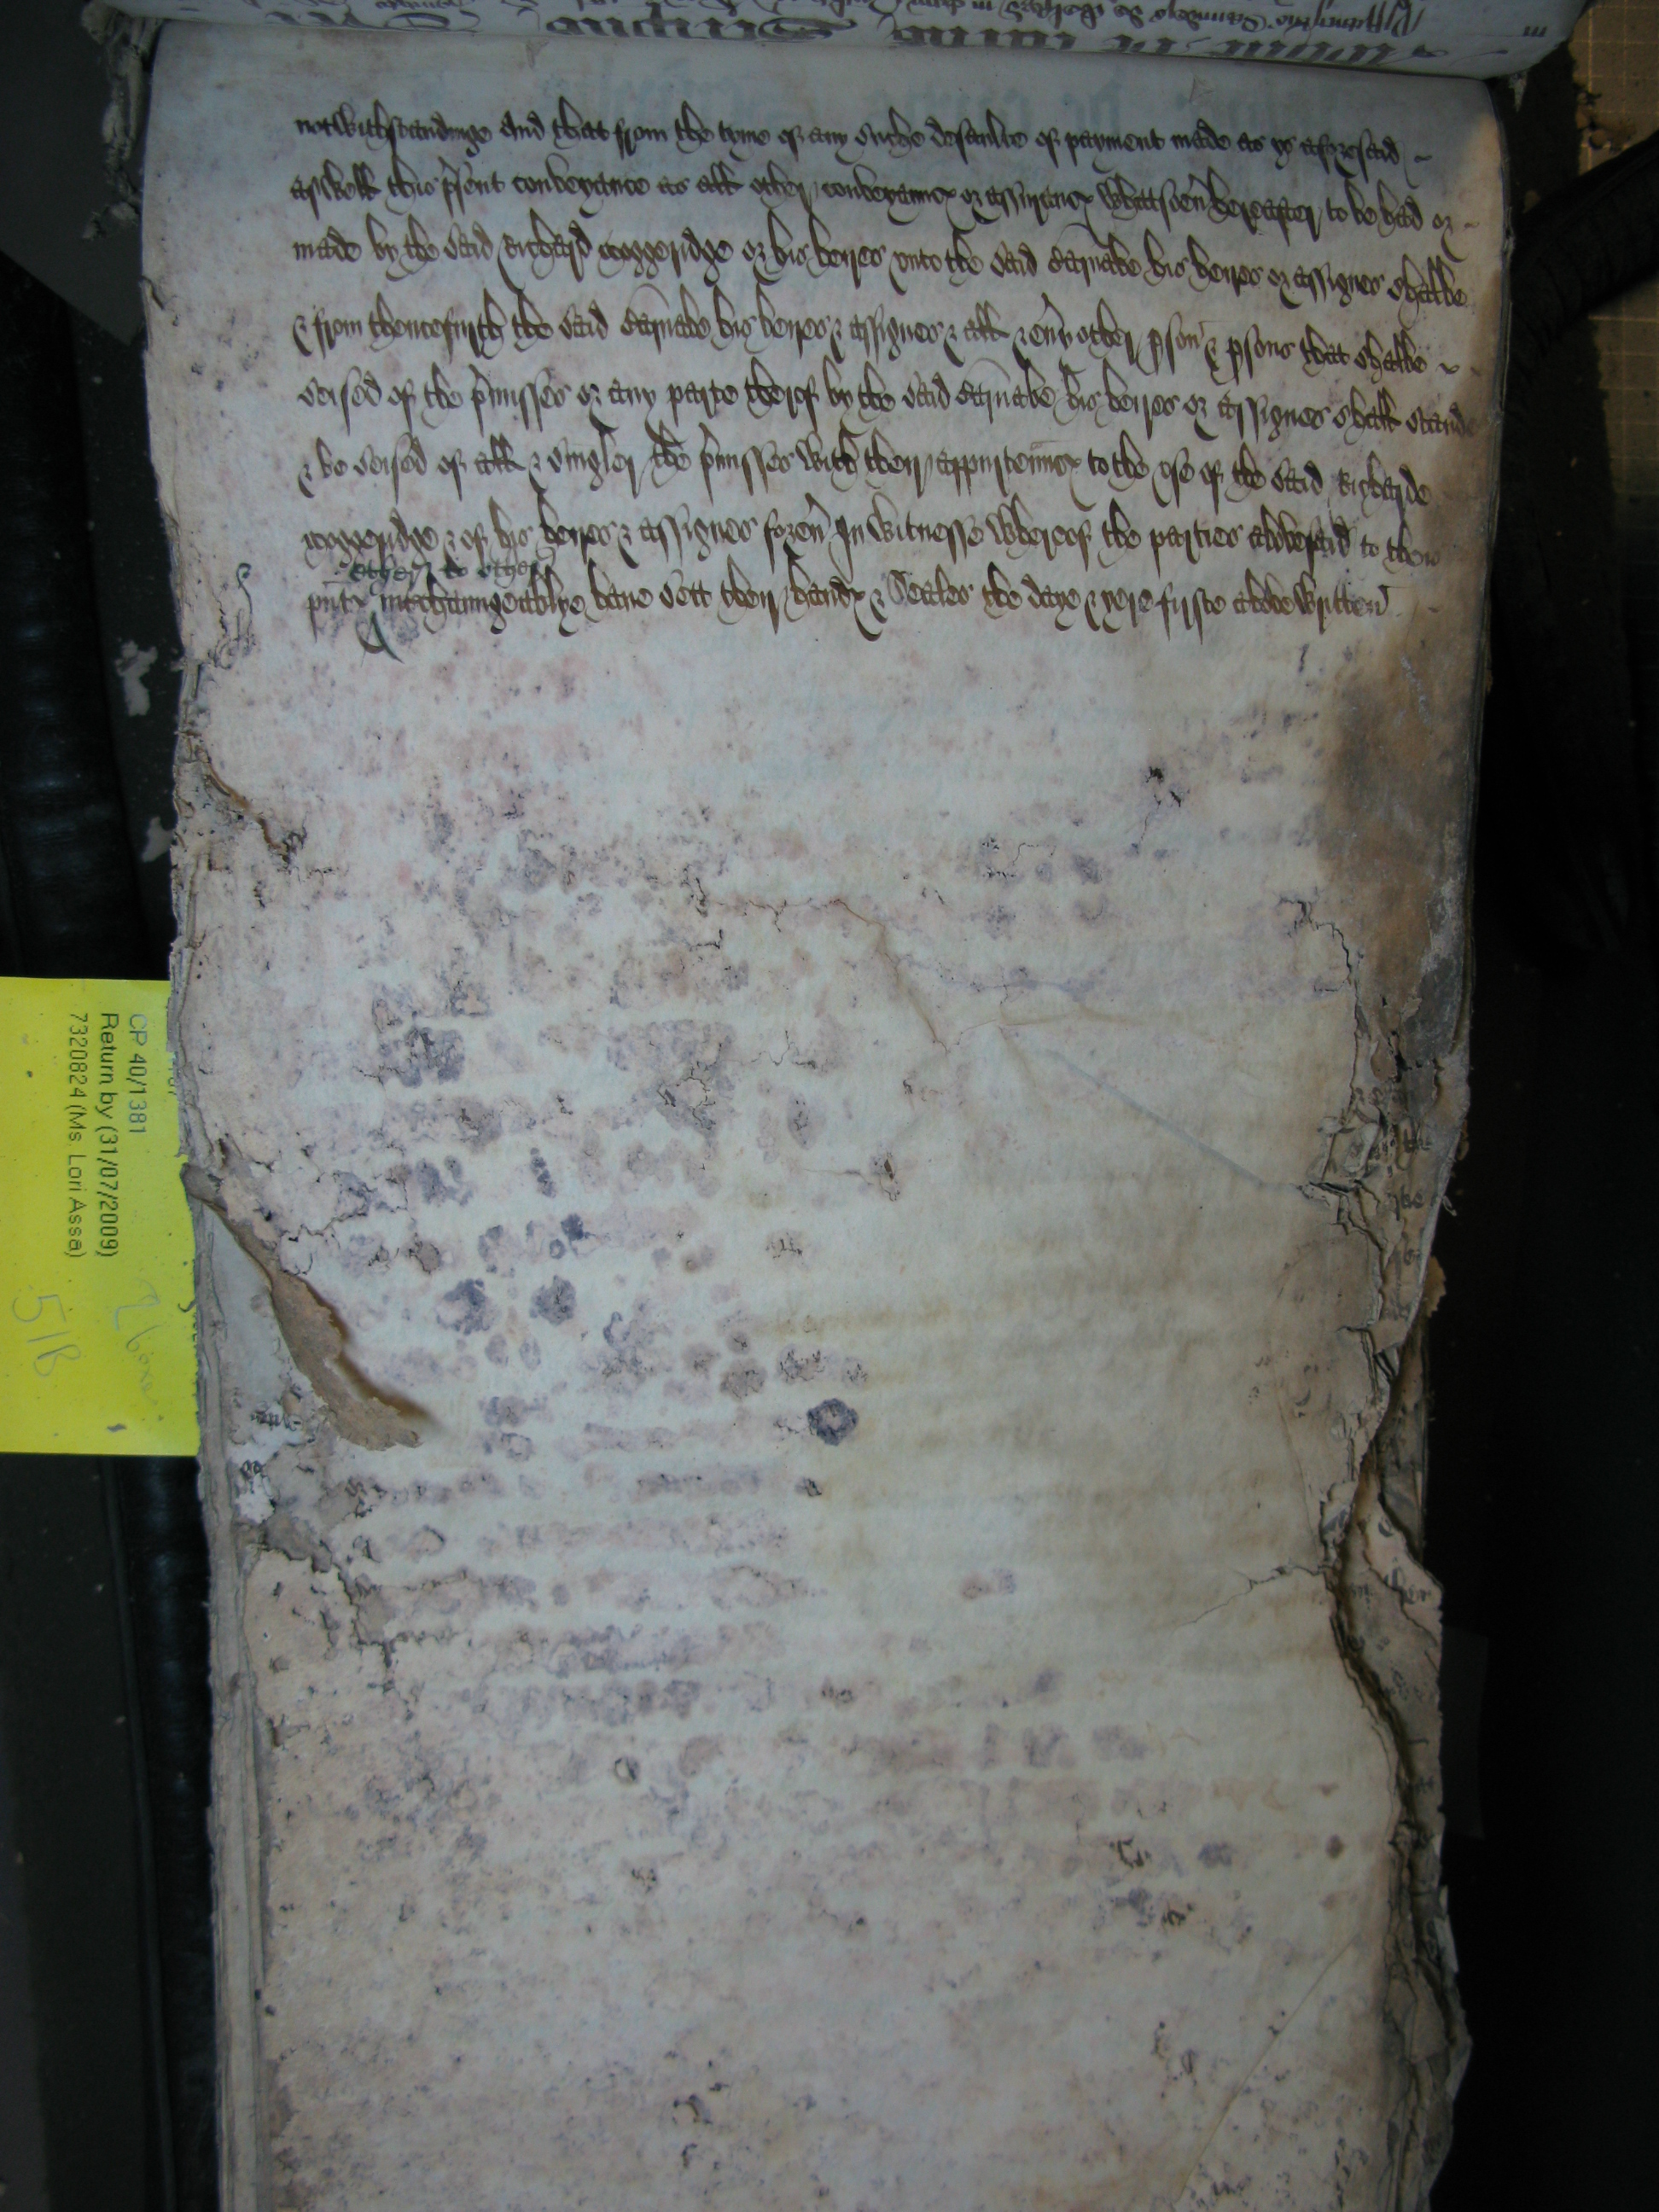 notwithstandinge And that from the tyme of any suche defaulte of payment made as ys aforesaid
aswell this p̃sent conveyance as all other conveyannc or assuranc whatsoeṽ hereafter to be had or
made by the said Richard Coggeridge or his heires unto the said Barnabe his heires or assignes shalbe
& from thencefurth the said Barnabe his heires & assignes & all & eṽy other pson & psons that shalbe
seised of the p̃misses or any parte therof by the said Barnabe his heires or assignes shall stande
& be seised of all & singler the p̃misses with their appurtennc to the use of the said Richarde
Coggeridge & of his heires & assignes foreṽ In witnesse whereof the parties abovesaid to theis
other to other
pñtc interchaungeablye have sett their handc & Seales the daye & yere firste above written
CP 40/1381
Return by (31/07/2009)
7320824 (Ms. Lori Assa)
51B